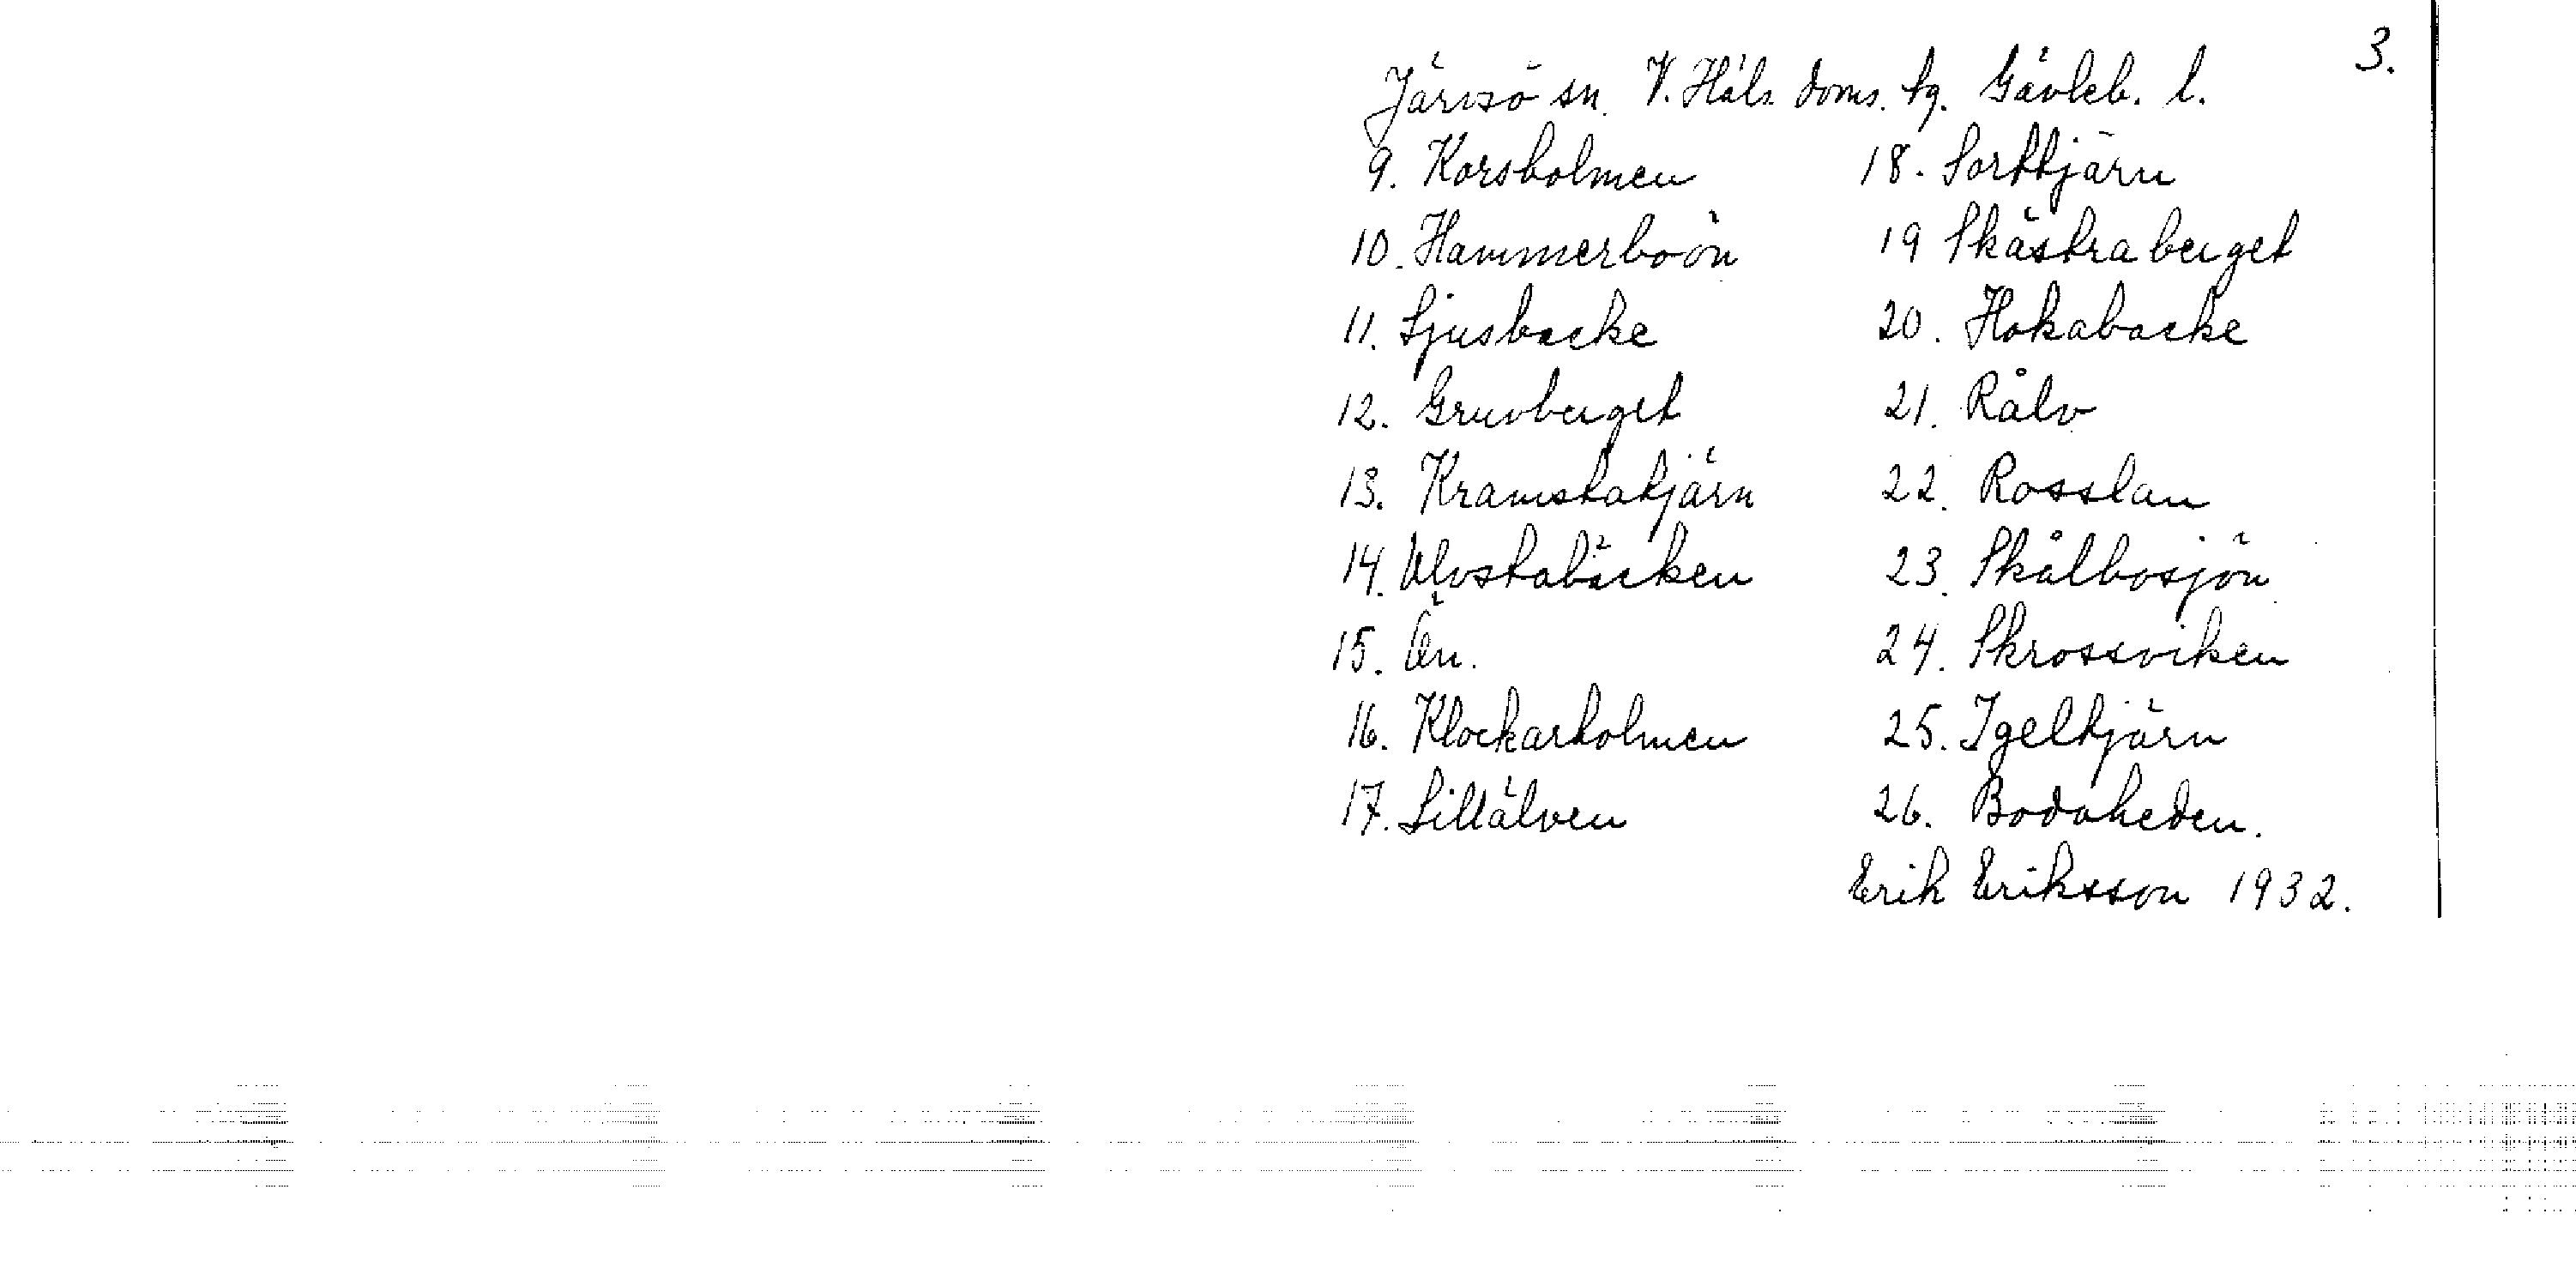 3.
Järvsö sn. V. Häls. doms. tg. Gävleb. l.
9. Korsholmen
10. Hammerboön
11. Ljusbacke
12. Gruvberget
13. Kramstatjärn
14. Ulvstabäcken
15. Ön.
16. Klockarholmen
17. Lillälven
18. Sorttjärn
19 Skästraberget
20. Hokabacke
21. Rålv
22. Rosslan
23. Skålbosjön
24. Skrossviken
25. Igeltjärn
26. Bodaheden.
Erik Eriksson 1932.